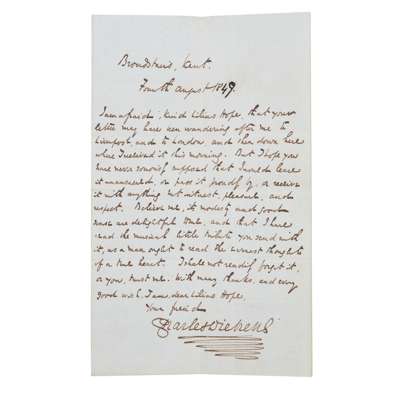 Broadstairs, Kent.
Fourth August 1849.
I am afraid, kind Hope, that your
letter may have been wandering after me to
Liverpool, and to London, and then down here
where I received it this morning. But I hope you
have never seriously supposed that I could leave
it unanswered, or pass it proudly by, or receive
it with anything but interest, pleasure, and
respect. Believe me, its modesty and good
are delightful to me, and that I have
read the musical little tribute you send with
it, as a man ought to read the earnest thoughts
of a true heart. I shall not readily forget it,
or you, trust me. With many thanks, and every
good wish, I am, dear Hope,
Your friend
Charles Dickens